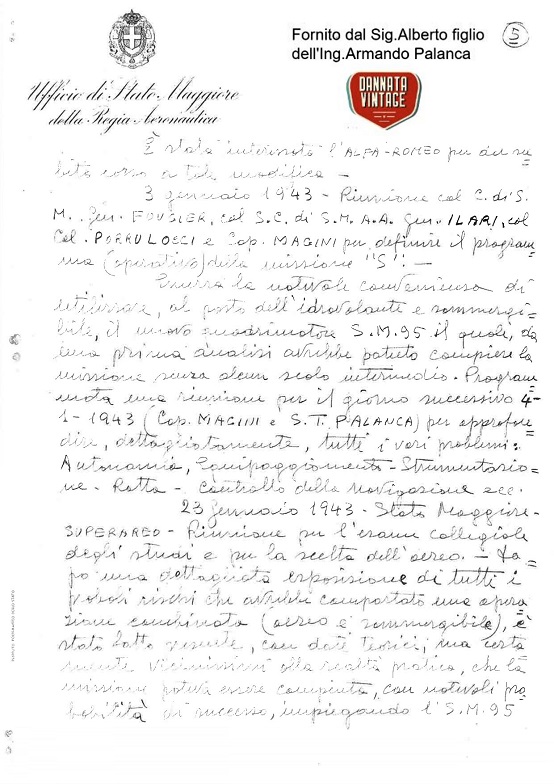 Fornito dal Sig.Alberto figlio
dell'Ing.Armando Palanca
5
DANNATA
VINTAGE
Ufficio di Stato Maggiore
della Regia Aeronautica
È stata interessata l'ALFA-ROMEO per dar su=
bito corso a tale modifica -
3 gennaio 1943 - Riunione col C. di S.
M. Gen. FOUGIER, col S.C. di S.M.A.A. Gen. ILARI, col
Col. PORRU LOCCI e Cap. MAGINI per definire il program
ma (operativo) della missione "S". -
Emersa la notevole convenienza di
utilizzare, al posto dell'idrovolante e sommergi=
bile, il nuovo quadrimotore S.M.95 il quale, da
una prima analisi avrebbe potuto compiere la
missione senza alcun scalo intermedio. Program
mata una riunione per il giorno successivo 4-
1-1943 (Cap. MAGINI e S.T. PALANCA) per approfon=
dire, dettagliatamente, tutti i vari problemi:
Autonomia, Equipaggiamento - Strumentazio=
ne - Rotta - Controllo della navigazione ecc.
23 Gennaio 1943 - Stato Maggiore -
SUPERAREO - Riunione per l'esame collegiale
degli studi e per la scelta dell'aereo. - Do
po una dettagliata esposizione di tutti i
rischi che avrebbe comportato una opera
zione combinata (aereo e sommergibile), è
stato fatto presente, con dati teorici, ma certa
mente vicinissimi alla realtà pratica, che la
missione poteva essere compiuta, con notevoli pro
babilità di successo, impiegando l'S.M.95